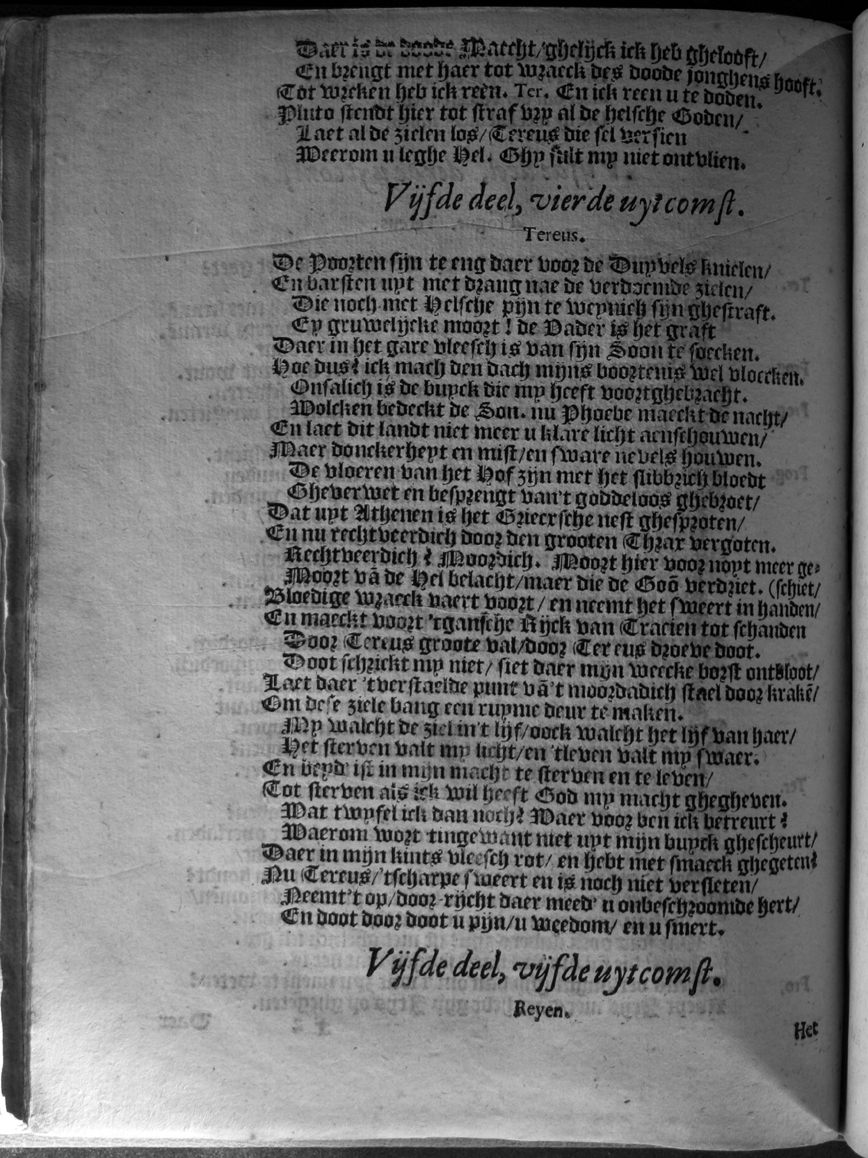 Daer is de doode Maecht/ghelijck ick heb ghelooft/
En brengt met haer tot wraeck des doode jonghens hooft.
Tot wreken heb ick reên. Ter. En ick reen u te doden.
Pluto stendt hier tot straf vry al de helsche Goden/
Laet al de zielen los/Tereus die sel versien
Weerom u leghe Hel. Ghy sult my niet ontvlien.
Vijfde deel, vierde uytcomst.
Tereus.
De Poorten sijn te eng daer voor de Duyvels knielen/
En barsten uyt met drang nae de verdoemde zielen/
Die noch met Helsche pijn te weynich sijn ghestraft.
Ey gruwelijcke moort! de Vader is het graft
Daer in het gare vleesch is van sijn Soon te soecken.
Hoe dus? ick mach den dach mijns boortenis wel vloecken.
Onsalich is de buyck die my heeft voortghebracht.
Wolcken bedeckt de Son. nu Phoebe maeckt de nacht/
En laet dit landt niet meer u klare licht aenschouwen/
Maer donckerheyt en mist/en sware nevels houwen.
De vloeren van het Hof zijn met het slibbrich bloedt
Gheverwet en besprengt van't goddeloos ghebroet/
Dat uyt Athenen is het Griecrsche nest ghesproten/
En nu rechtveerdich door den grooten Thrax vergoten.
Rechtveerdich? Moordich. Moort hier voor noyt meer ge-
Moort vã de Hel belacht/maer die de Goõ verdriet. (schiet/
Bloedige wraeck vaert voort/ en neemt het sweert in handen/
En maeckt voort 'tgansche Rijck van Tracien tot schanden
Door Tereus groote val/door Tereus droeve doot.
Doot schrickt my niet/ siet daer mijn weecke borst ontbloot/
Laet daer 'tverstaelde punt vã't moordadich stael door krakẽ/
Om dese ziele bang een ruyme deur te maken.
My walcht de ziel in't lijf/oock walcht het lijf van haer/
Het sterven valt my licht/en 'tleven valt my swaer.
En beyd' ist in mijn macht te sterven en te leven/
Tot sterven als ick wil heeft God my macht ghegheven.
Wat twyfel ick dan noch? Waer voor ben ick betreurt?
Waerom wort tingewant niet uyt mijn buyck ghescheurt/
Daer in mijn kints vleesch rot/ en hebt met smaeck ghegeten?
Nu Tereus/'tscharpe sweert en is noch niet versleten/
Neemt't op/door-rijcht daer meed' u onbeschroomde hert/
En doot door doot u pijn/u weedom/ en u smert.
Vijfde deel, vijfde uytcomst.
Reyen.
Het